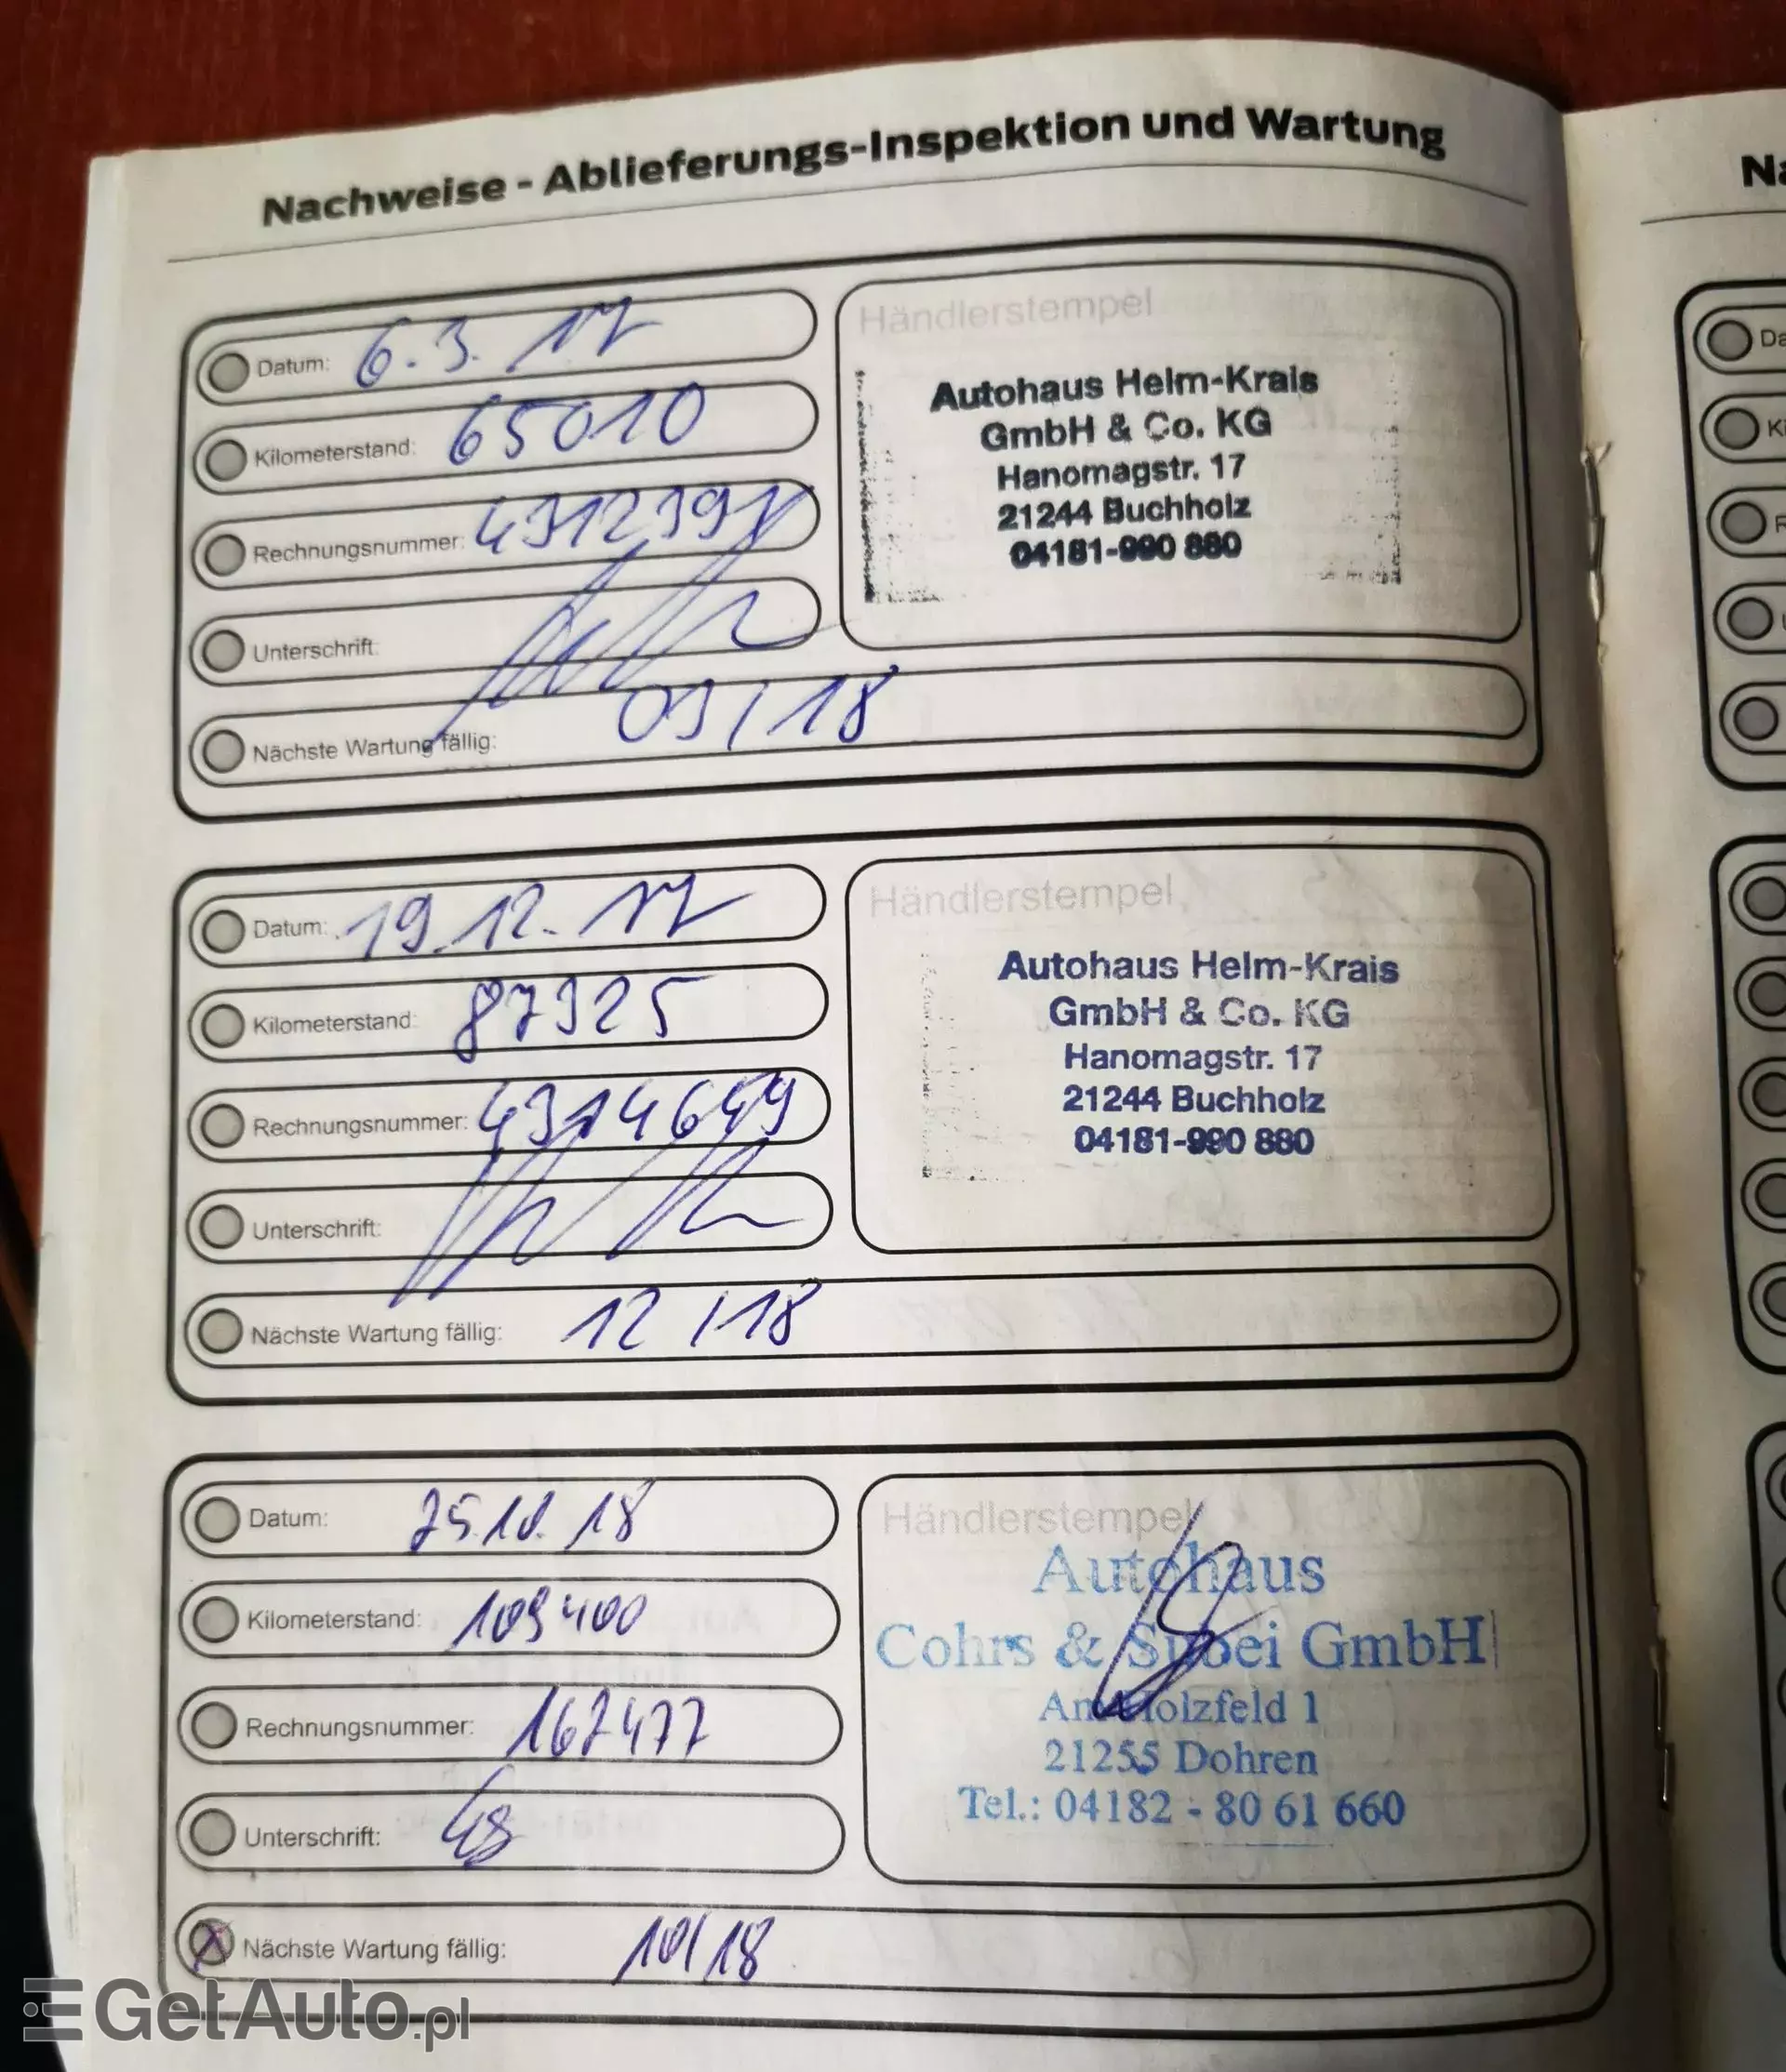 Nachweise - Ablieferungs-Inspektion und Wartung
Datum: 6.3.17
Kilometerstand: 65010
Rechnungsnummer:
Unterschrift:
Nächste Wartung fällig: 03/18
Händlerstempel
Autohaus Helm-Krais
GmbH & Co. KG
Hanomagstr. 17
21244 Buchholz
04181-990 880
Datum: 19.12.17
Kilometerstand: 87325
Rechnungsnummer: 4314649
Unterschrift:
Nächste Wartung fällig: 12/18
Händlerstempel
Autohaus Helm-Krais
GmbH & Co. KG
Hanomagstr. 17
21244 Buchholz
04181-990 880
Datum: 25.10.18
Kilometerstand: 109400
Rechnungsnummer: 167477
Unterschrift:
Nächste Wartung fällig: 10/18
Händlerstempel
Autohaus
Cohrs & GmbH
Am Holzfeld 1
21255 Dohren
Tel.: 04182 - 80 61 660
GetAuto.pl